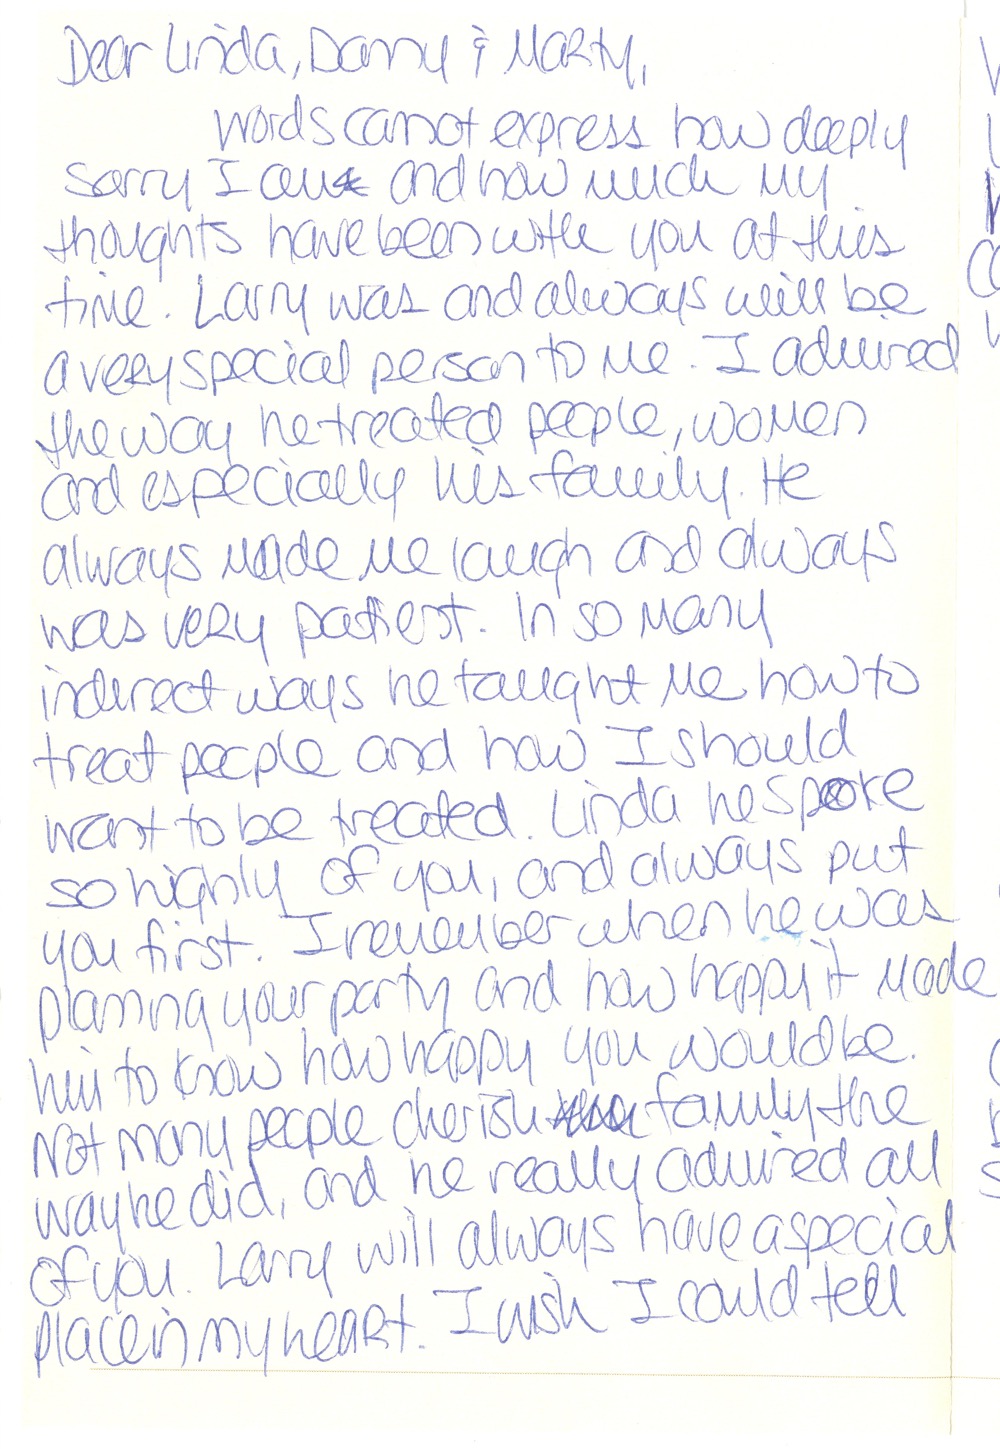 Dear Linda, Danny & Marty,
Words cannot express how deeply
sorry I am and how much my
thoughts have been with you at this
time. Larry was and always will be
a very special person to me. I admired
the way he treated people, women
and especially his family. He
always made me laugh and always
was very patient. In so many
indirect ways he taught me how to
treat people and how I should
want to be treated. Linda he spoke
so highly of you, and always put
you first. I remember when he was
planning your party and how happy it made
him to know how happy you would be.
Not many people cherish family the
way he did, and he really admired all
of you. Larry will always have a special
place in my heart. I wish I could tell